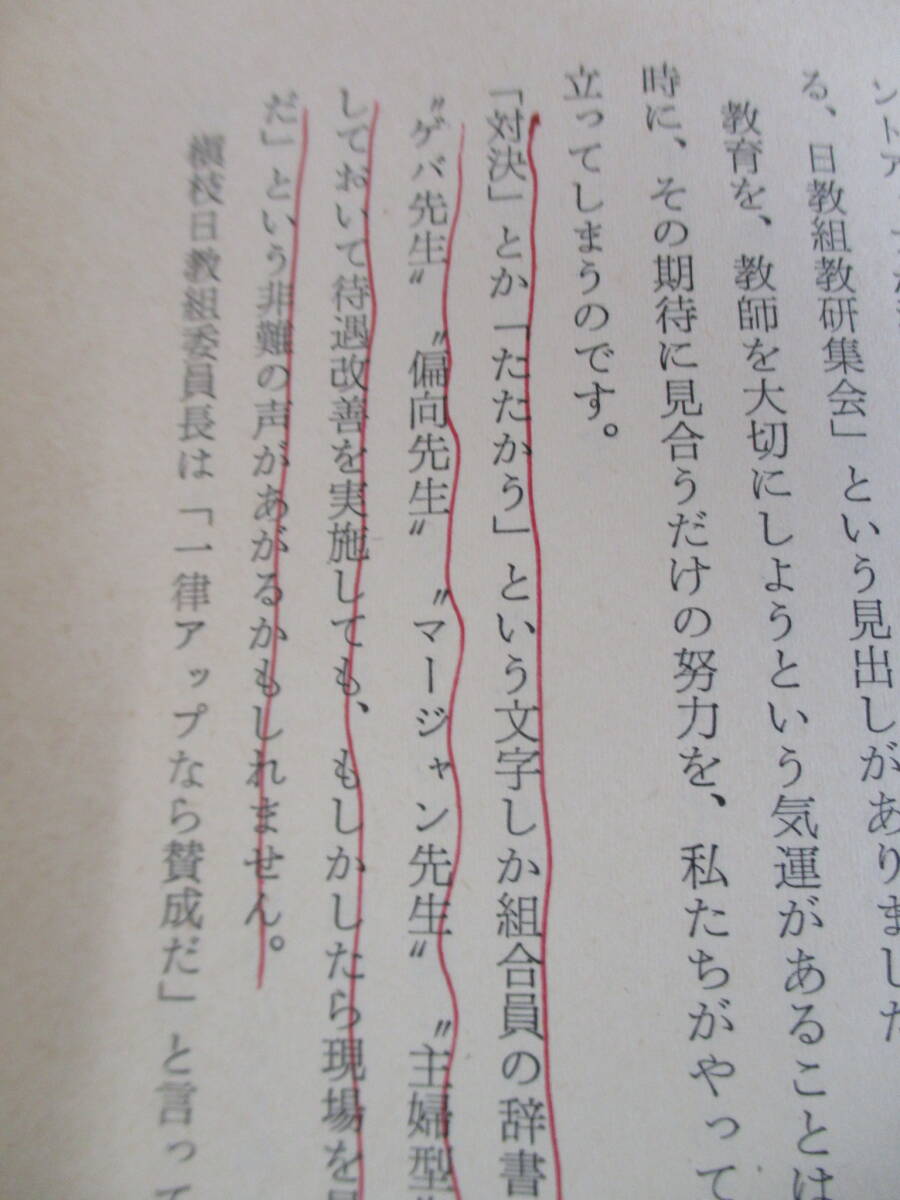 る、日教組教研集会」という見出しがありました
教育を、教師を大切にしようという気運があることは
時に、その期待に見合うだけの努力を、私たちがやって
立ってしまうのです。
「対決」とか「たたかう」という文字しか組合員の辞書
〝ゲバ先生〟〝偏向先生〟〝マージャン先生〟〝主婦型
しておいて待遇改善を実施しても、もしかしたら現場を
だ」という非難の声があがるかもしれません。
槇枝日教組委員長は「一律アップなら賛成だ」と言って